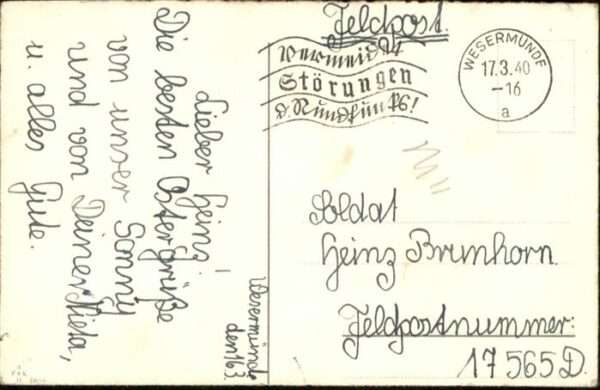 Feldpost.
WESERMÜNDE
17.3.40
-16
a
Vermeidet
Störungen
d. Rundfunks!
Wesermünde
den 16.3.
Lieber Heinz!
Die besten Ostergrüße
von unser Sonny
und von Deiner
u. alles Gute.
Soldat
Heinz Brunhorn.
Feldpostnummer:
17565 D.